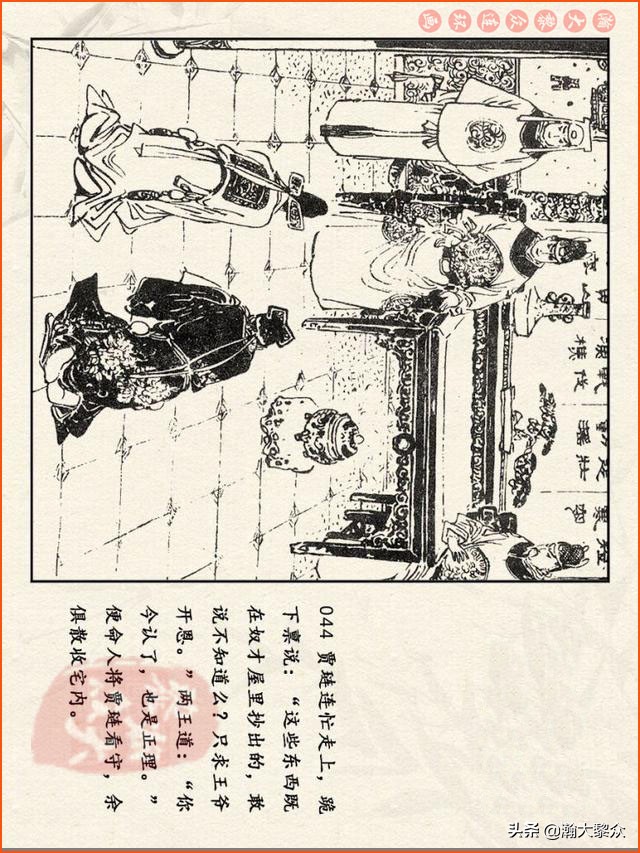 瀚大黎众连环画
044 贾琏连忙走上，跪
下禀说：“这些东西既
在奴才屋里抄出的，敢
说不知道么？只求王爷
开恩。”两王道：“你
今认了，也是正理。”
便命人将贾琏看守，余
俱散收宅内。
头条 @瀚大黎众